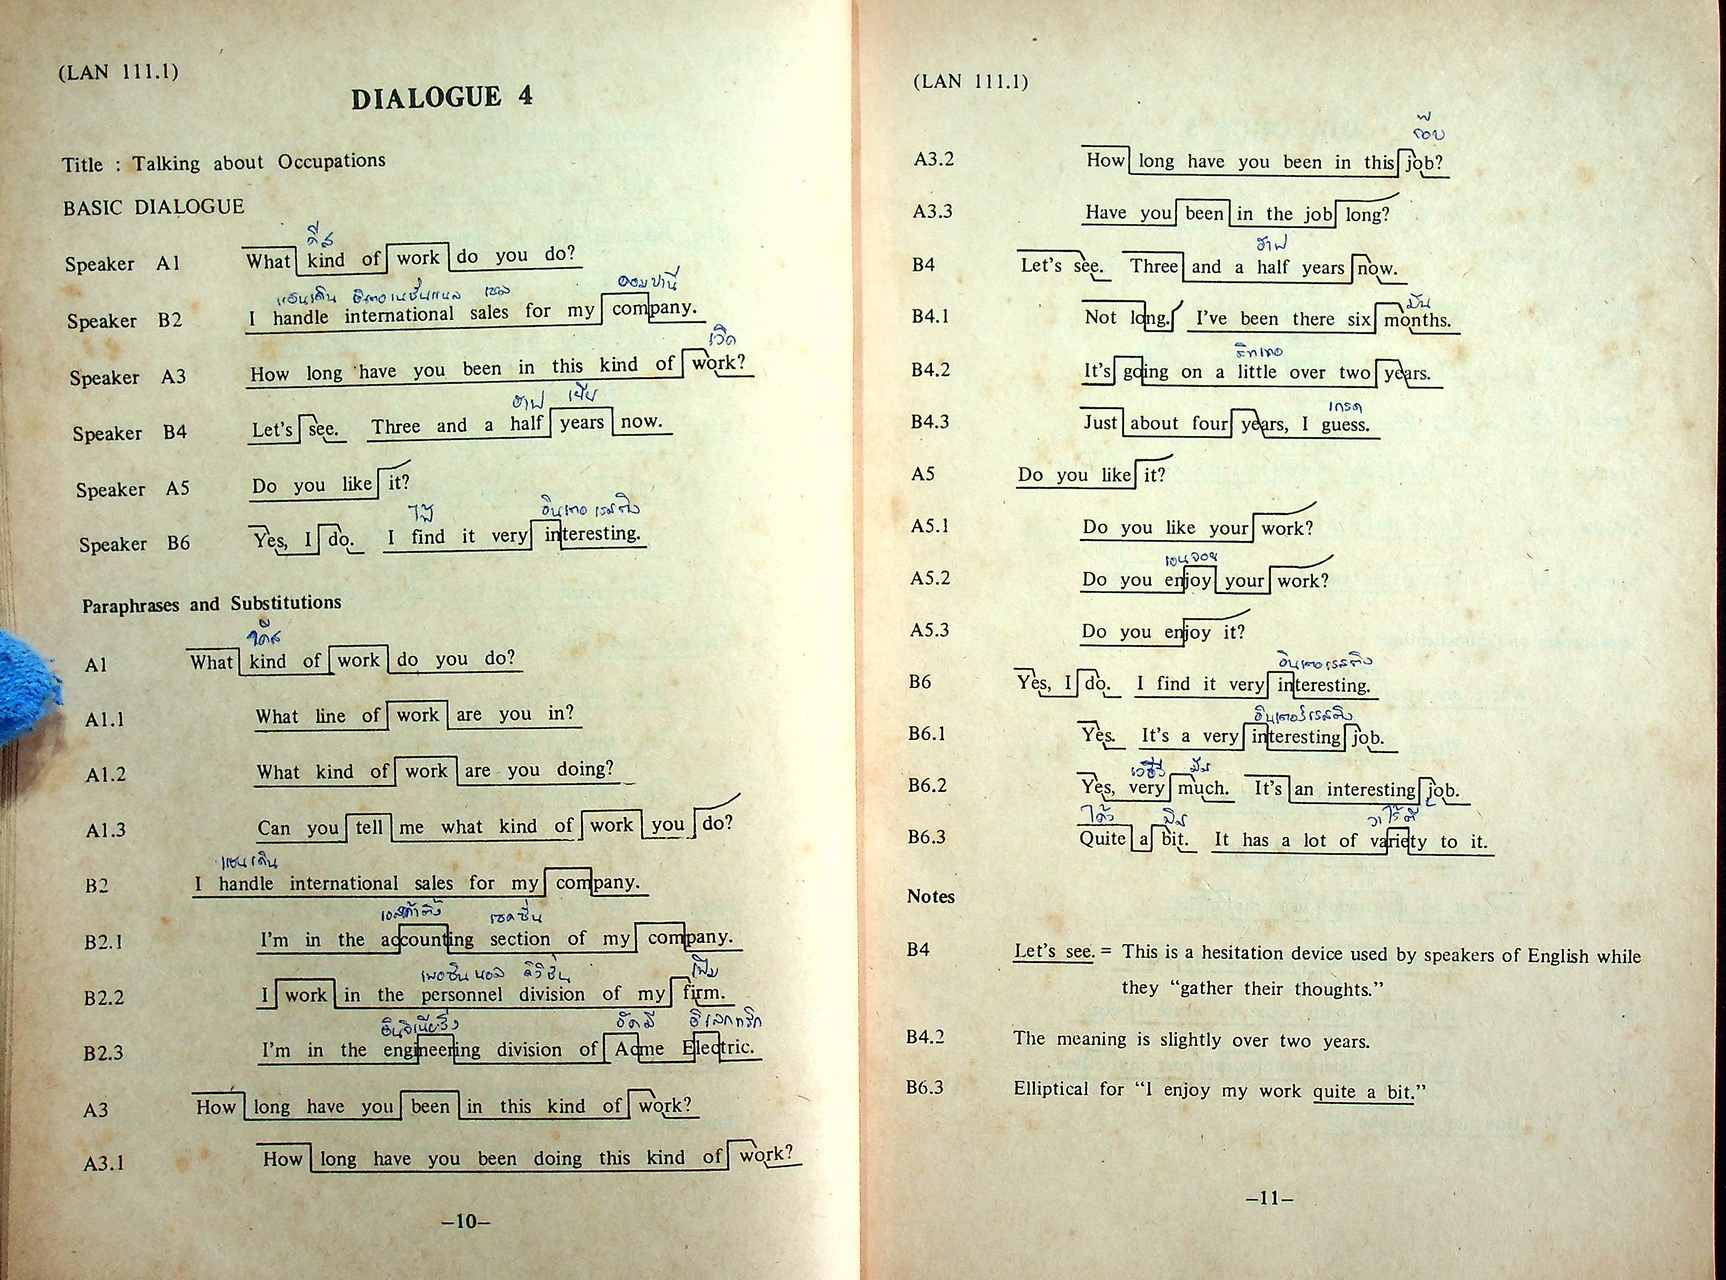 (LAN 111.1)
DIALOGUE 4
Title : Talking about Occupations
BASIC DIALOGUE
Speaker A1 What kind of work do you do?
คอมปานี
Speaker B2 I handle international sales for my company.
Speaker A3 How long have you been in this kind of work?
ฮาฟ เยีย
Speaker B4 Let's see. Three and a half years now.
Speaker A5 Do you like it?
Speaker B6 Yes, I do. I find it very interesting.
Paraphrases and Substitutions
A1 What kind of work do you do?
A1.1 What line of work are you in?
A1.2 What kind of work are you doing?
A1.3 Can you tell me what kind of work you do?
B2 I handle international sales for my company.
B2.1 I'm in the accounting section of my company.
B2.2 I work in the personnel division of my firm.
B2.3 I'm in the engineering division of Acme Electric.
A3 How long have you been in this kind of work?
A3.1 How long have you been doing this kind of work?
–10–
(LAN 111.1)
A3.2 How long have you been in this job?
A3.3 Have you been in the job long?
ฮาฟ
B4 Let's see. Three and a half years now.
B4.1 Not long. I've been there six months.
B4.2 It's going on a little over two years.
B4.3 Just about four years, I guess.
A5 Do you like it?
A5.1 Do you like your work?
เอนจอย
A5.2 Do you enjoy your work?
A5.3 Do you enjoy it?
B6 Yes, I do. I find it very interesting.
B6.1 Yes. It's a very interesting job.
B6.2 Yes, very much. It's an interesting job.
B6.3 Quite a bit. It has a lot of variety to it.
Notes
B4 Let's see. = This is a hesitation device used by speakers of English while
they “gather their thoughts.”
B4.2 The meaning is slightly over two years.
B6.3 Elliptical for “I enjoy my work quite a bit.”
–11–